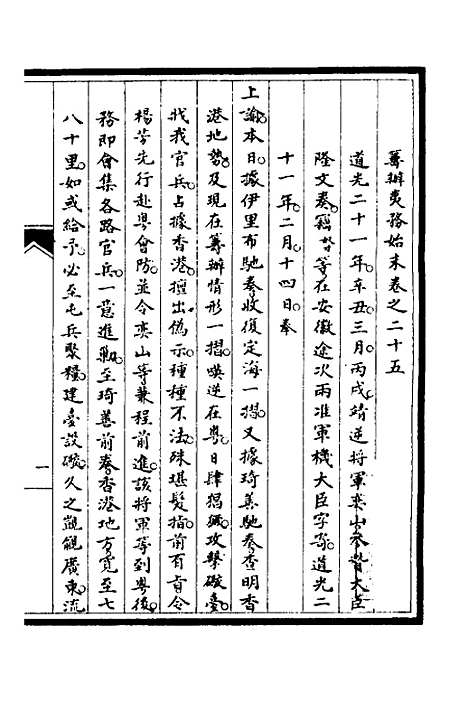 籌辦夷務始末卷之二十五
道光二十一年辛丑三月丙戌靖逆將軍奕山參贊大臣
隆文奏竊等在安徽途次兩准軍機大臣字寄道光二
十一年二月十四日奉
上諭本日據伊里布馳奏收復定海一摺又據琦善馳奏查明香
港地勢及現在籌辦情形一摺㗸逆在粵日肆猖獗攻擊礮臺
戕我官兵占據香港擅出僞示種種不法殊堪髮指前有旨令
楊芳先行赴粵會防並令奕山等兼程前進該將軍等到粵後
務即會集各路官兵一意進勦至琦善前奏香港地方寬至七
八十里如或給予必至屯兵聚糧建臺設礮久之覬覦廣東流
一